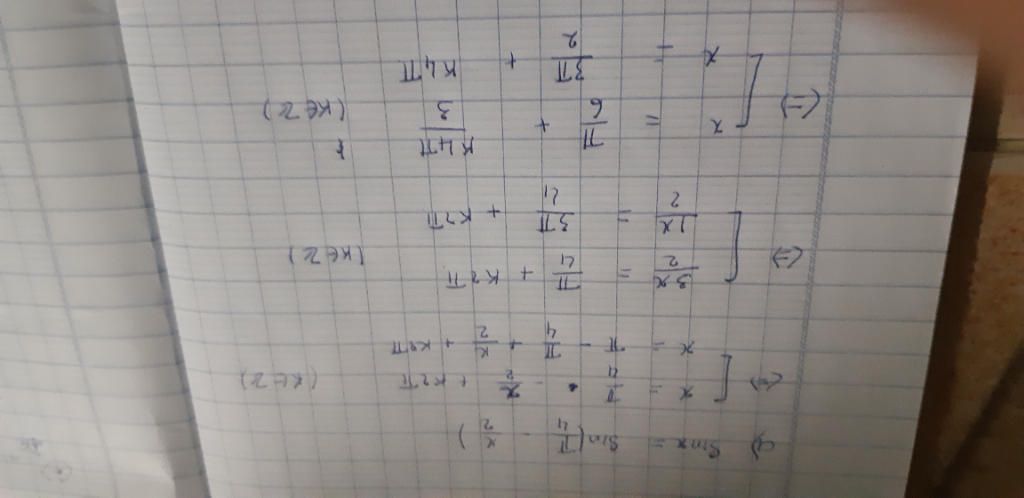 a) sinx = sin(π/4 - x/2)
(=) [ x = π/4 - x/2 + k2π (k∈Z)
x = π - π/4 + x/2 + k2π
(=) [ 3x/2 = π/4 + k2π (k∈Z)
1x/2 = 3π/4 + k2π
(=) [ x = π/6 + k4π/3 (k∈Z)
x = 3π/2 + k4π